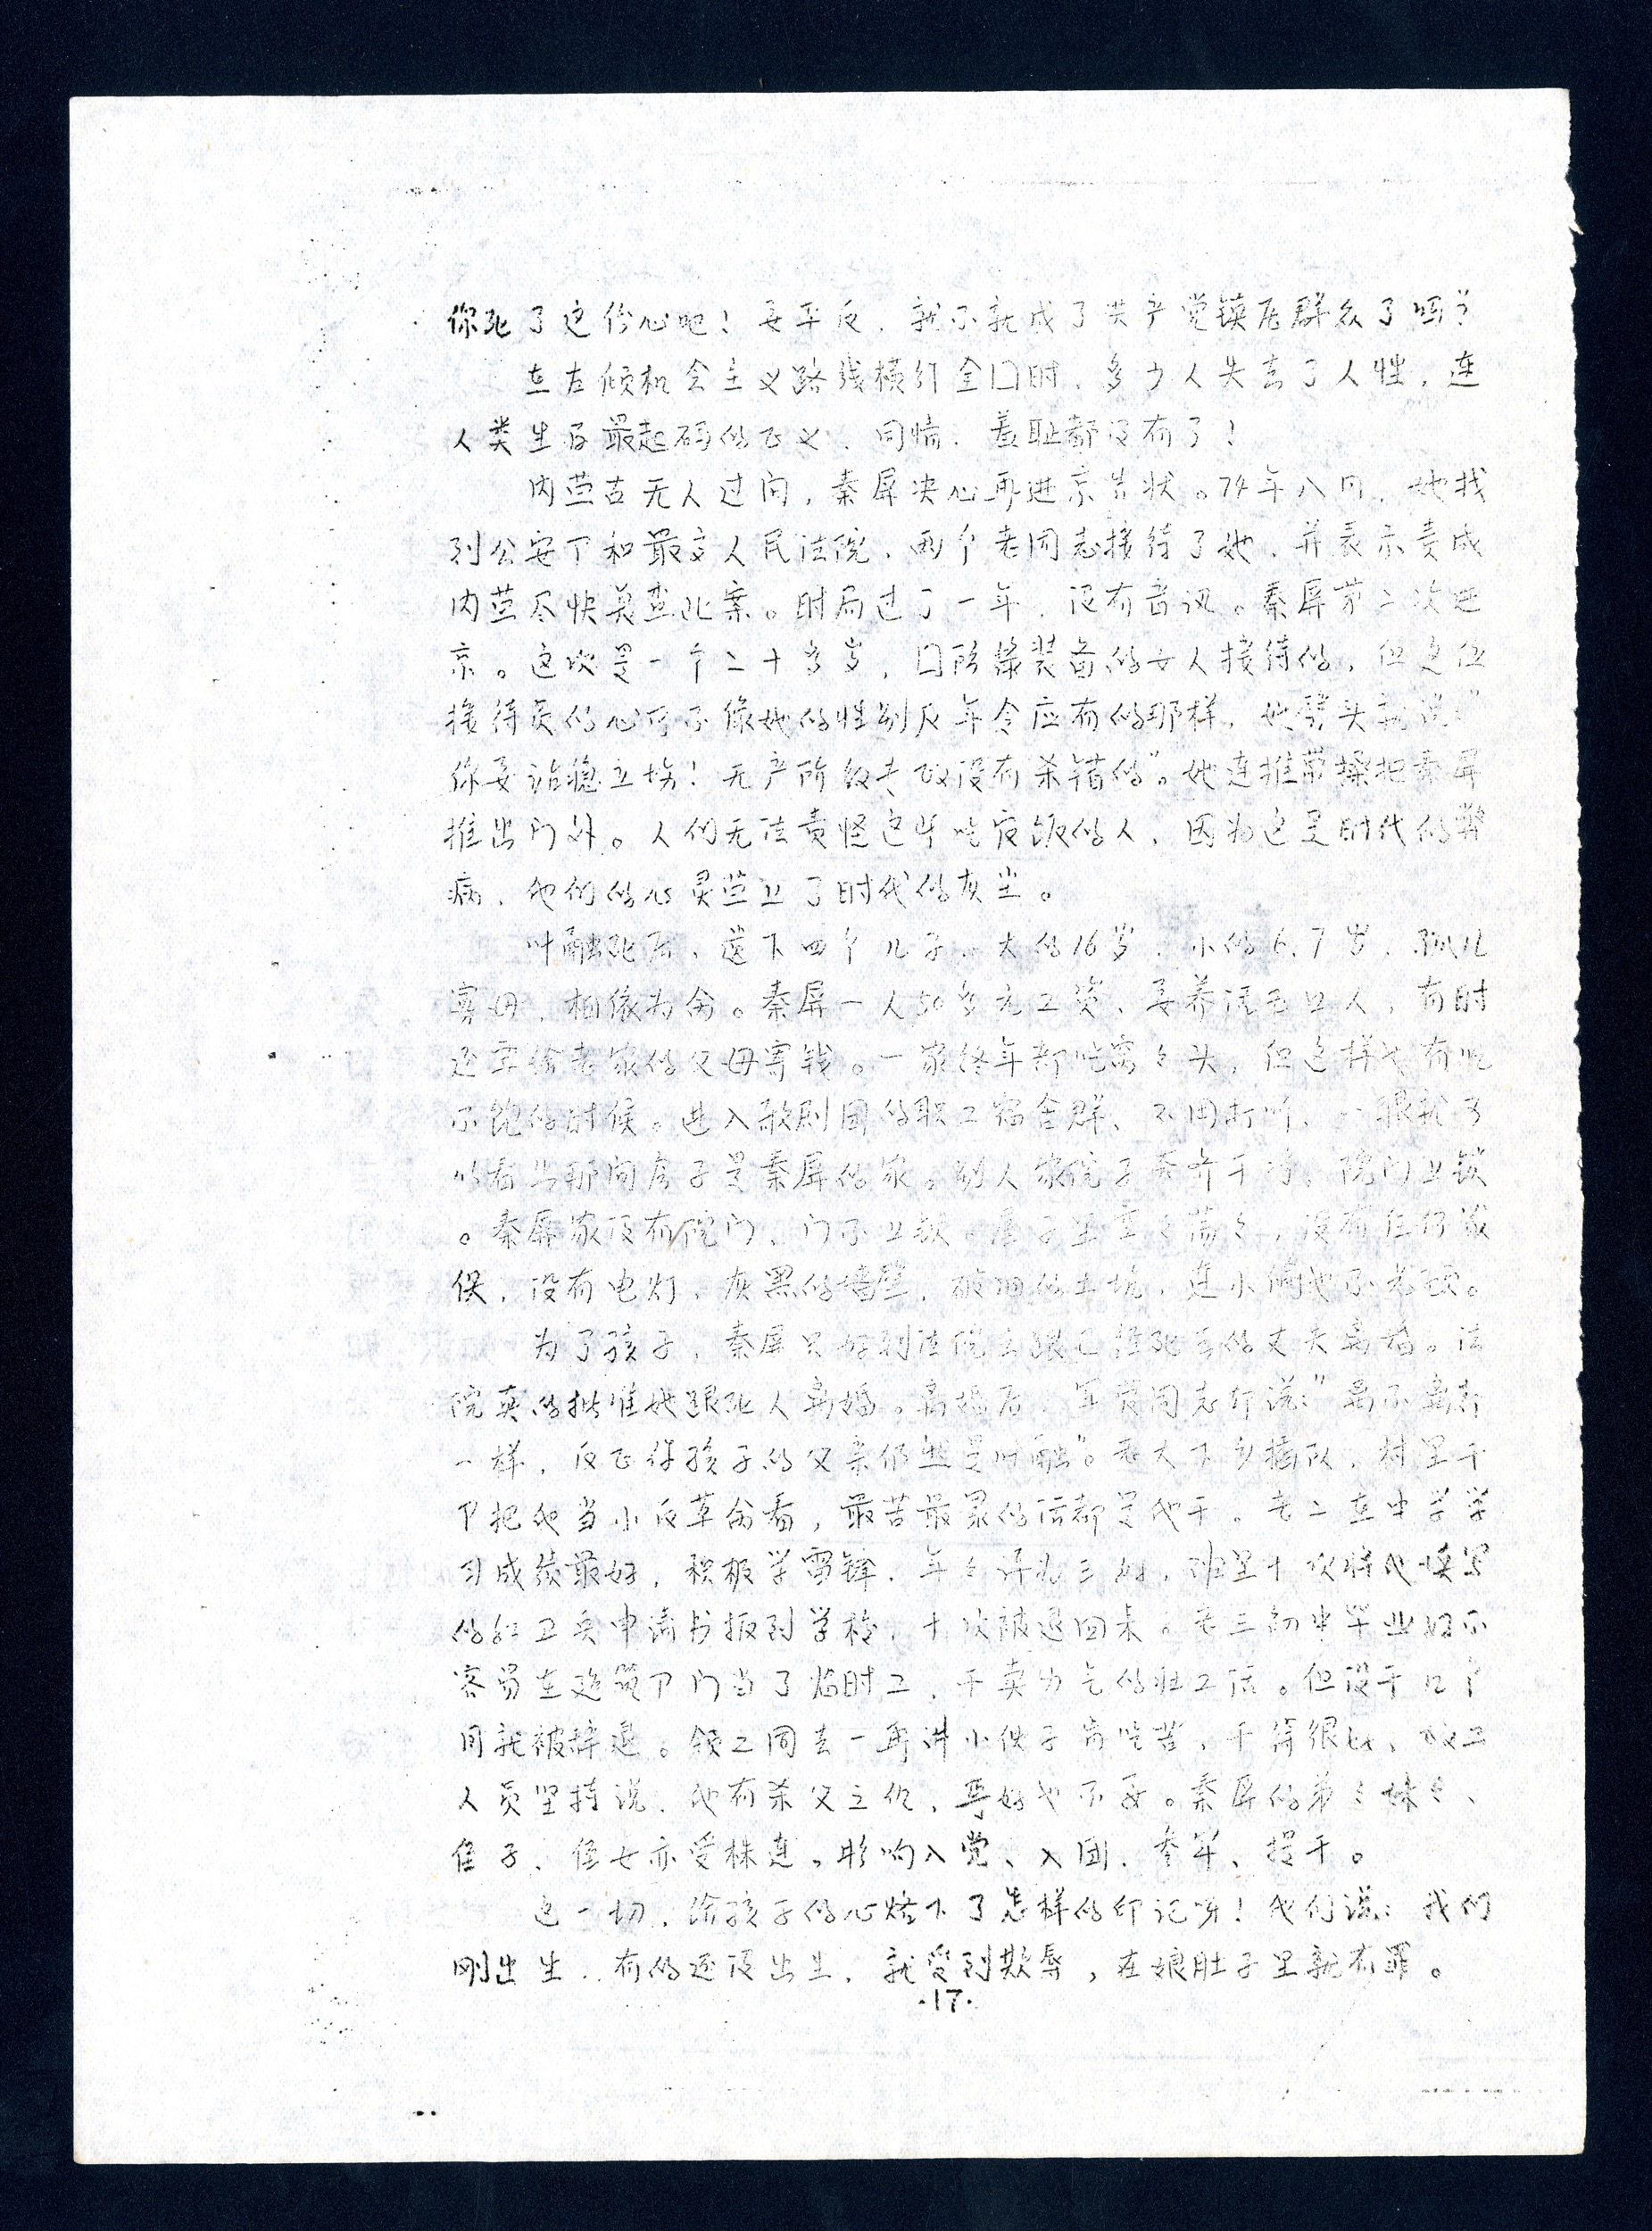 你死了这份心吧！要平反，就不就成了共产党镇压群众了吗？
在左倾机会主义路线横行全囗时，多少人失去了人性，连
人类生存最起码的正义、同情、羞耻都没有了！
内蒙古无人过问，秦屏决心再进京告状。74年八月，她找
到公安卩和最高人民法院，两个老同志接待了她，并表示责成
内蒙尽快复查此案。时局过了一年，没有音讯。秦屏第二次进
京。这次是一个二十多岁，囗防绿装备的女人接待的，但这位
接待员的心可不像她的性别及年令应有的那样，她劈头就说"
你要站稳立场！无产阶级专政没有杀错的"。她连推带搡把秦屏
推出门外。人们无法责怪这些吃官饭的人，因为这是时代的弊
病，他们的心灵蒙上了时代的灰尘。
叶融死后，遗下四个儿子，大的16岁，小的6、7岁，孤儿
寡母，相依为命。秦屏一人50多元工资，要养活五口人，有时
还要给老家的父母寄钱。一家终年都吃窝々头，但这样也有吃
不饱的时候。进入歌剧团的职工宿舍群，不用打听，一眼就可
以看出那间房子是秦屏的家。别人家院子整齐干净，院门上锁
。秦屏家没有院门，门不上锁。屋子里空々荡々，没有任何
没有电灯，灰黑的墙壁，破旧的土坑，连小偷也不光顾。
为了孩子，秦屏只好到法院去跟已经死去的丈夫离婚。法
院真的批准她跟死人离婚。离婚后，军管同志却说："离不离都
一样，反正你孩子的父亲仍然是叶融"。老大下乡插队，村里干
卩把他当小反革命看，最苦最累的活都是他干。老二在中学学
习成绩最好，积极学雷锋，年々评为三好，班里十次将他填写
的红卫兵申请书报到学校，十次被退回来。老三初中毕业好不
容易在建筑卩门当了临时工，干卖力气的壮工活。但没干几个
月就被辞退。领工同志一再讲小伙子肯吃苦，干得很好，政工
人员坚持说，他有杀父之仇，再好也不要。秦屏的弟々妹々、
侄子、侄女亦受株连。影响入党、入团、参军、提干。
这一切，给孩子的心烙下了怎样的印记呀！他们说：我们
刚出生，有的还没出生，就受到欺辱，在娘肚子里就有罪。
·17·